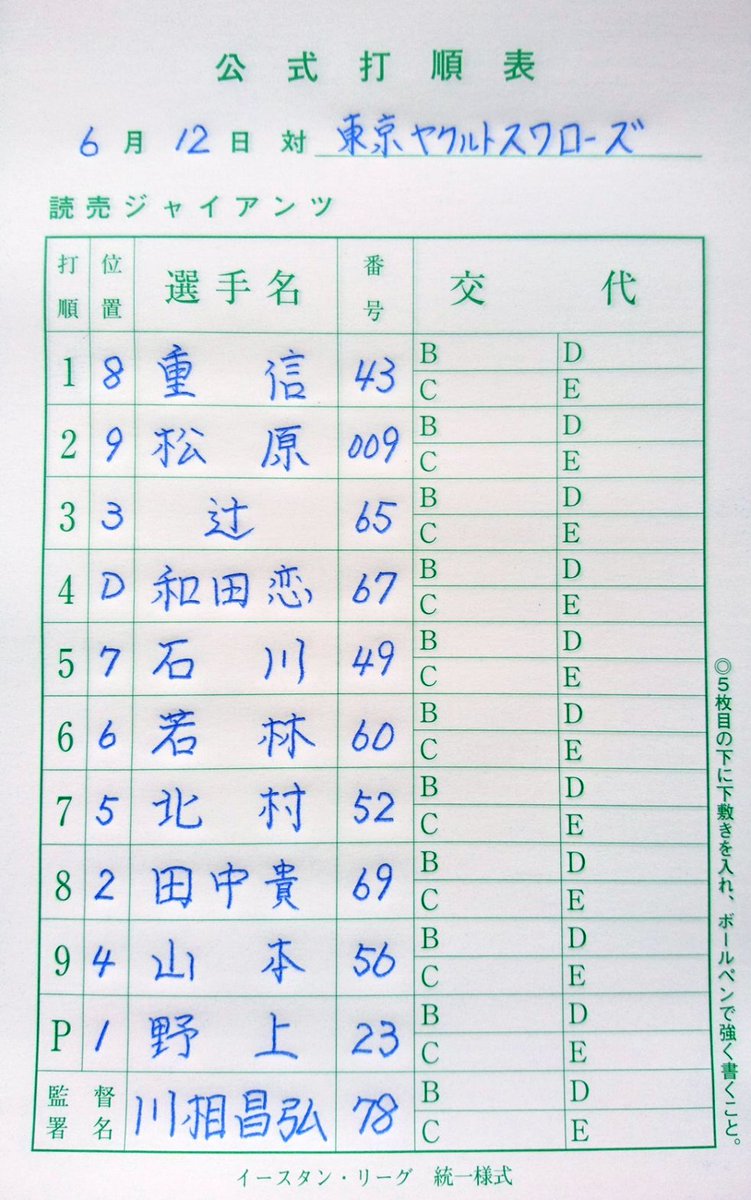 公式打順表
6月12日 対 東京ヤクルトスワローズ
読売ジャイアンツ
打順 位置 選手名 番号 交代
1 8 重信 43 B D C E
2 9 松原 009 B D C E
3 3 辻 65 B D C E
4 D 和田恋 67 B D C E
5 7 石川 49 B D C E
6 6 若林 60 B D C E
7 5 北村 52 B D C E
8 2 田中貴 69 B D C E
9 4 山本 56 B D C E
P 1 野上 23 B D C E
監督署名 川相昌弘 78 B D C E
イースタン・リーグ 統一様式
◎5枚目の下に下敷きを入れ、ボールペンで強く書くこと。